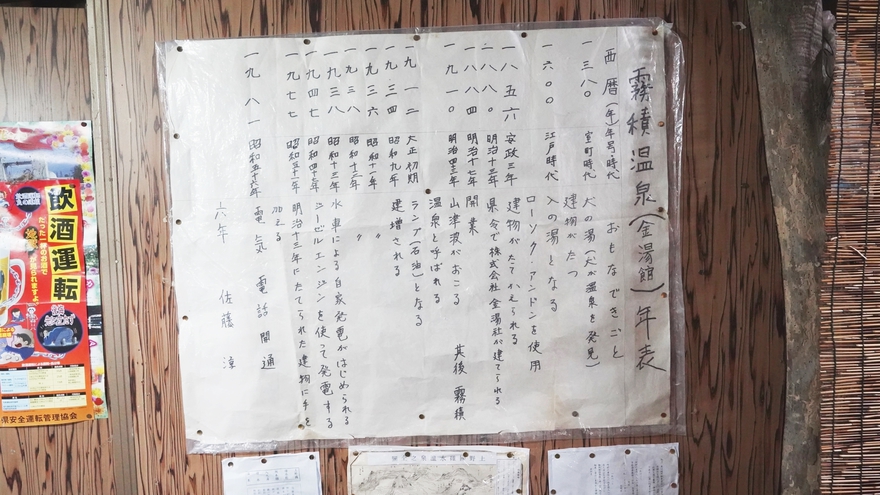 霧積温泉(金湯館)年表
西暦(年) 年号時代 おもなできごと
一三八〇 室町時代 犬の湯(犬が温泉を発見)
建物がたつ
一六〇〇 江戸時代 入の湯となる
ローソク・アンドンを使用
一八五六 安政三年 建物がたてかえられる
一八八〇 明治十三年 県令で株式会社金湯社が建てられる
一八八四 明治十七年 開業
一九一〇 明治四三年 山津波がおこる 其後霧積
温泉と呼ばれる
一九一二 大正初期 ランプ(石油)となる
一九三四 昭和九年 建増される
一九三六 昭和十一年 〃
一九三八 〃
一九三八 昭和十三年 水車による自家発電がはじめられる
一九四七 ジーゼルエンジンを使って発電する
一九七七 明治十三年にたてられた建物に手を
加える
一九八一 昭和五十六年 電気 電話開通
六年 佐藤
飲酒運転
県安全運転管理協会